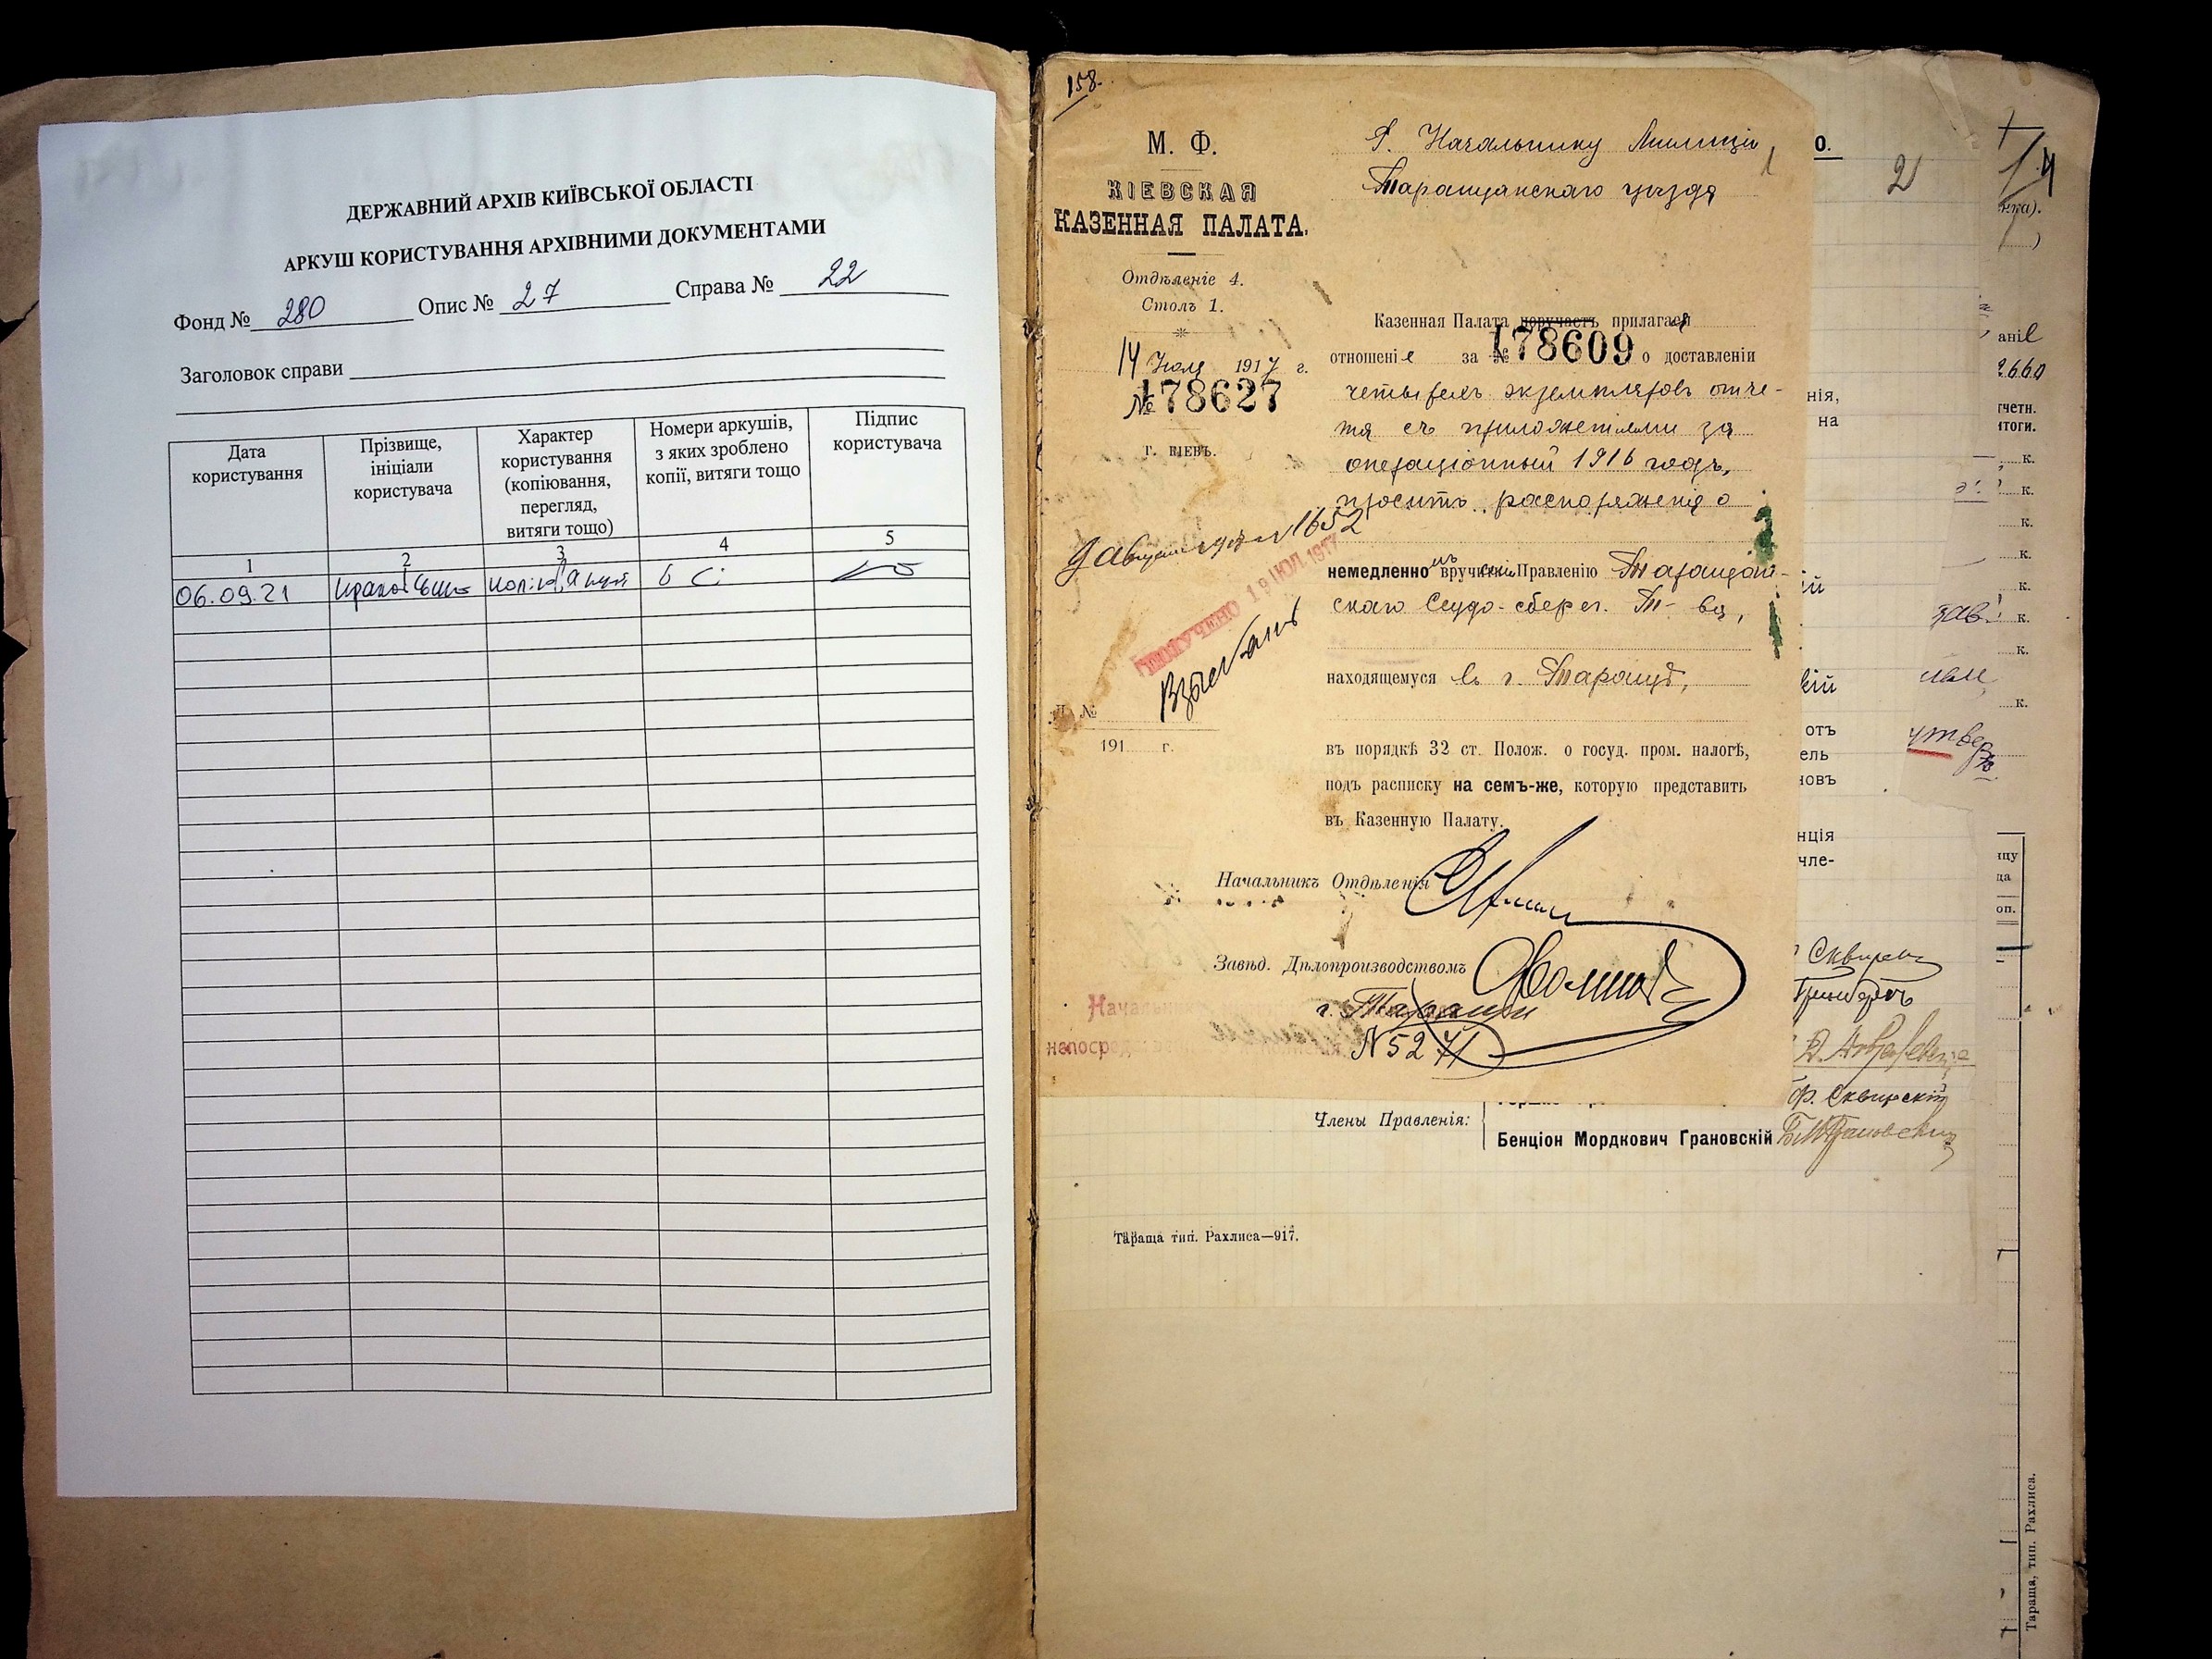 ДЕРЖАВНИЙ АРХІВ КИЇВСЬКОЇ ОБЛАСТІ
АРКУШ КОРИСТУВАННЯ АРХІВНИМИ ДОКУМЕНТАМИ
Фонд № 280 Опис № 27 Справа № 22
Заголовок справи
Дата користування
Прізвище, ініціали користувача
Характер користування (копіювання, перегляд, витяги тощо)
Номери аркушів, з яких зроблено копії, витяги тощо
Підпис користувача
1 2 3 4 5
06.09.21
158.
М. Ф.
КІЕВСКАЯ
КАЗЕННАЯ ПАЛАТА.
Отдѣленіе 4.
Столъ 1.
14 Іюля 1917 г.
№ 178627
г. КІЕВЪ.
ПОЛУЧЕНО 19 ІЮЛ 1917
Д. №
191 г.
Г. Начальнику Милиціи
Таращанскаго уѣзда
1
Казенная Палата поручаетъ прилагая
отношеніе за № 178609 о доставленіи
четырехъ экземпляровъ отче-
та съ приложеніями за
операціонный 1916 годъ,
проситъ распоряженія о
немедленно вручить Правленію Таращан-
скаго Ссудо-сберег. Т-ва,
находящемуся въ г. Таращѣ,
въ порядкѣ 32 ст. Полож. о госуд. пром. налогѣ,
подъ расписку на семъ-же, которую представить
въ Казенную Палату.
Начальникъ Отдѣленія
Завѣд. Дѣлопроизводствомъ
г. Тараща
N 5271
Члены Правленія:
Бенціон Мордкович Грановскій
Тараща тип. Рахлиса—917.
о.
2
нія,
на
отъ
ель
новъ
нція
чле-
утверд
Гр. Сквирскій
гчетн.
итоги.
к.
к.
к.
к.
к.
к.
к.
к.
оп.
Тараща, тип. Рахлиса.